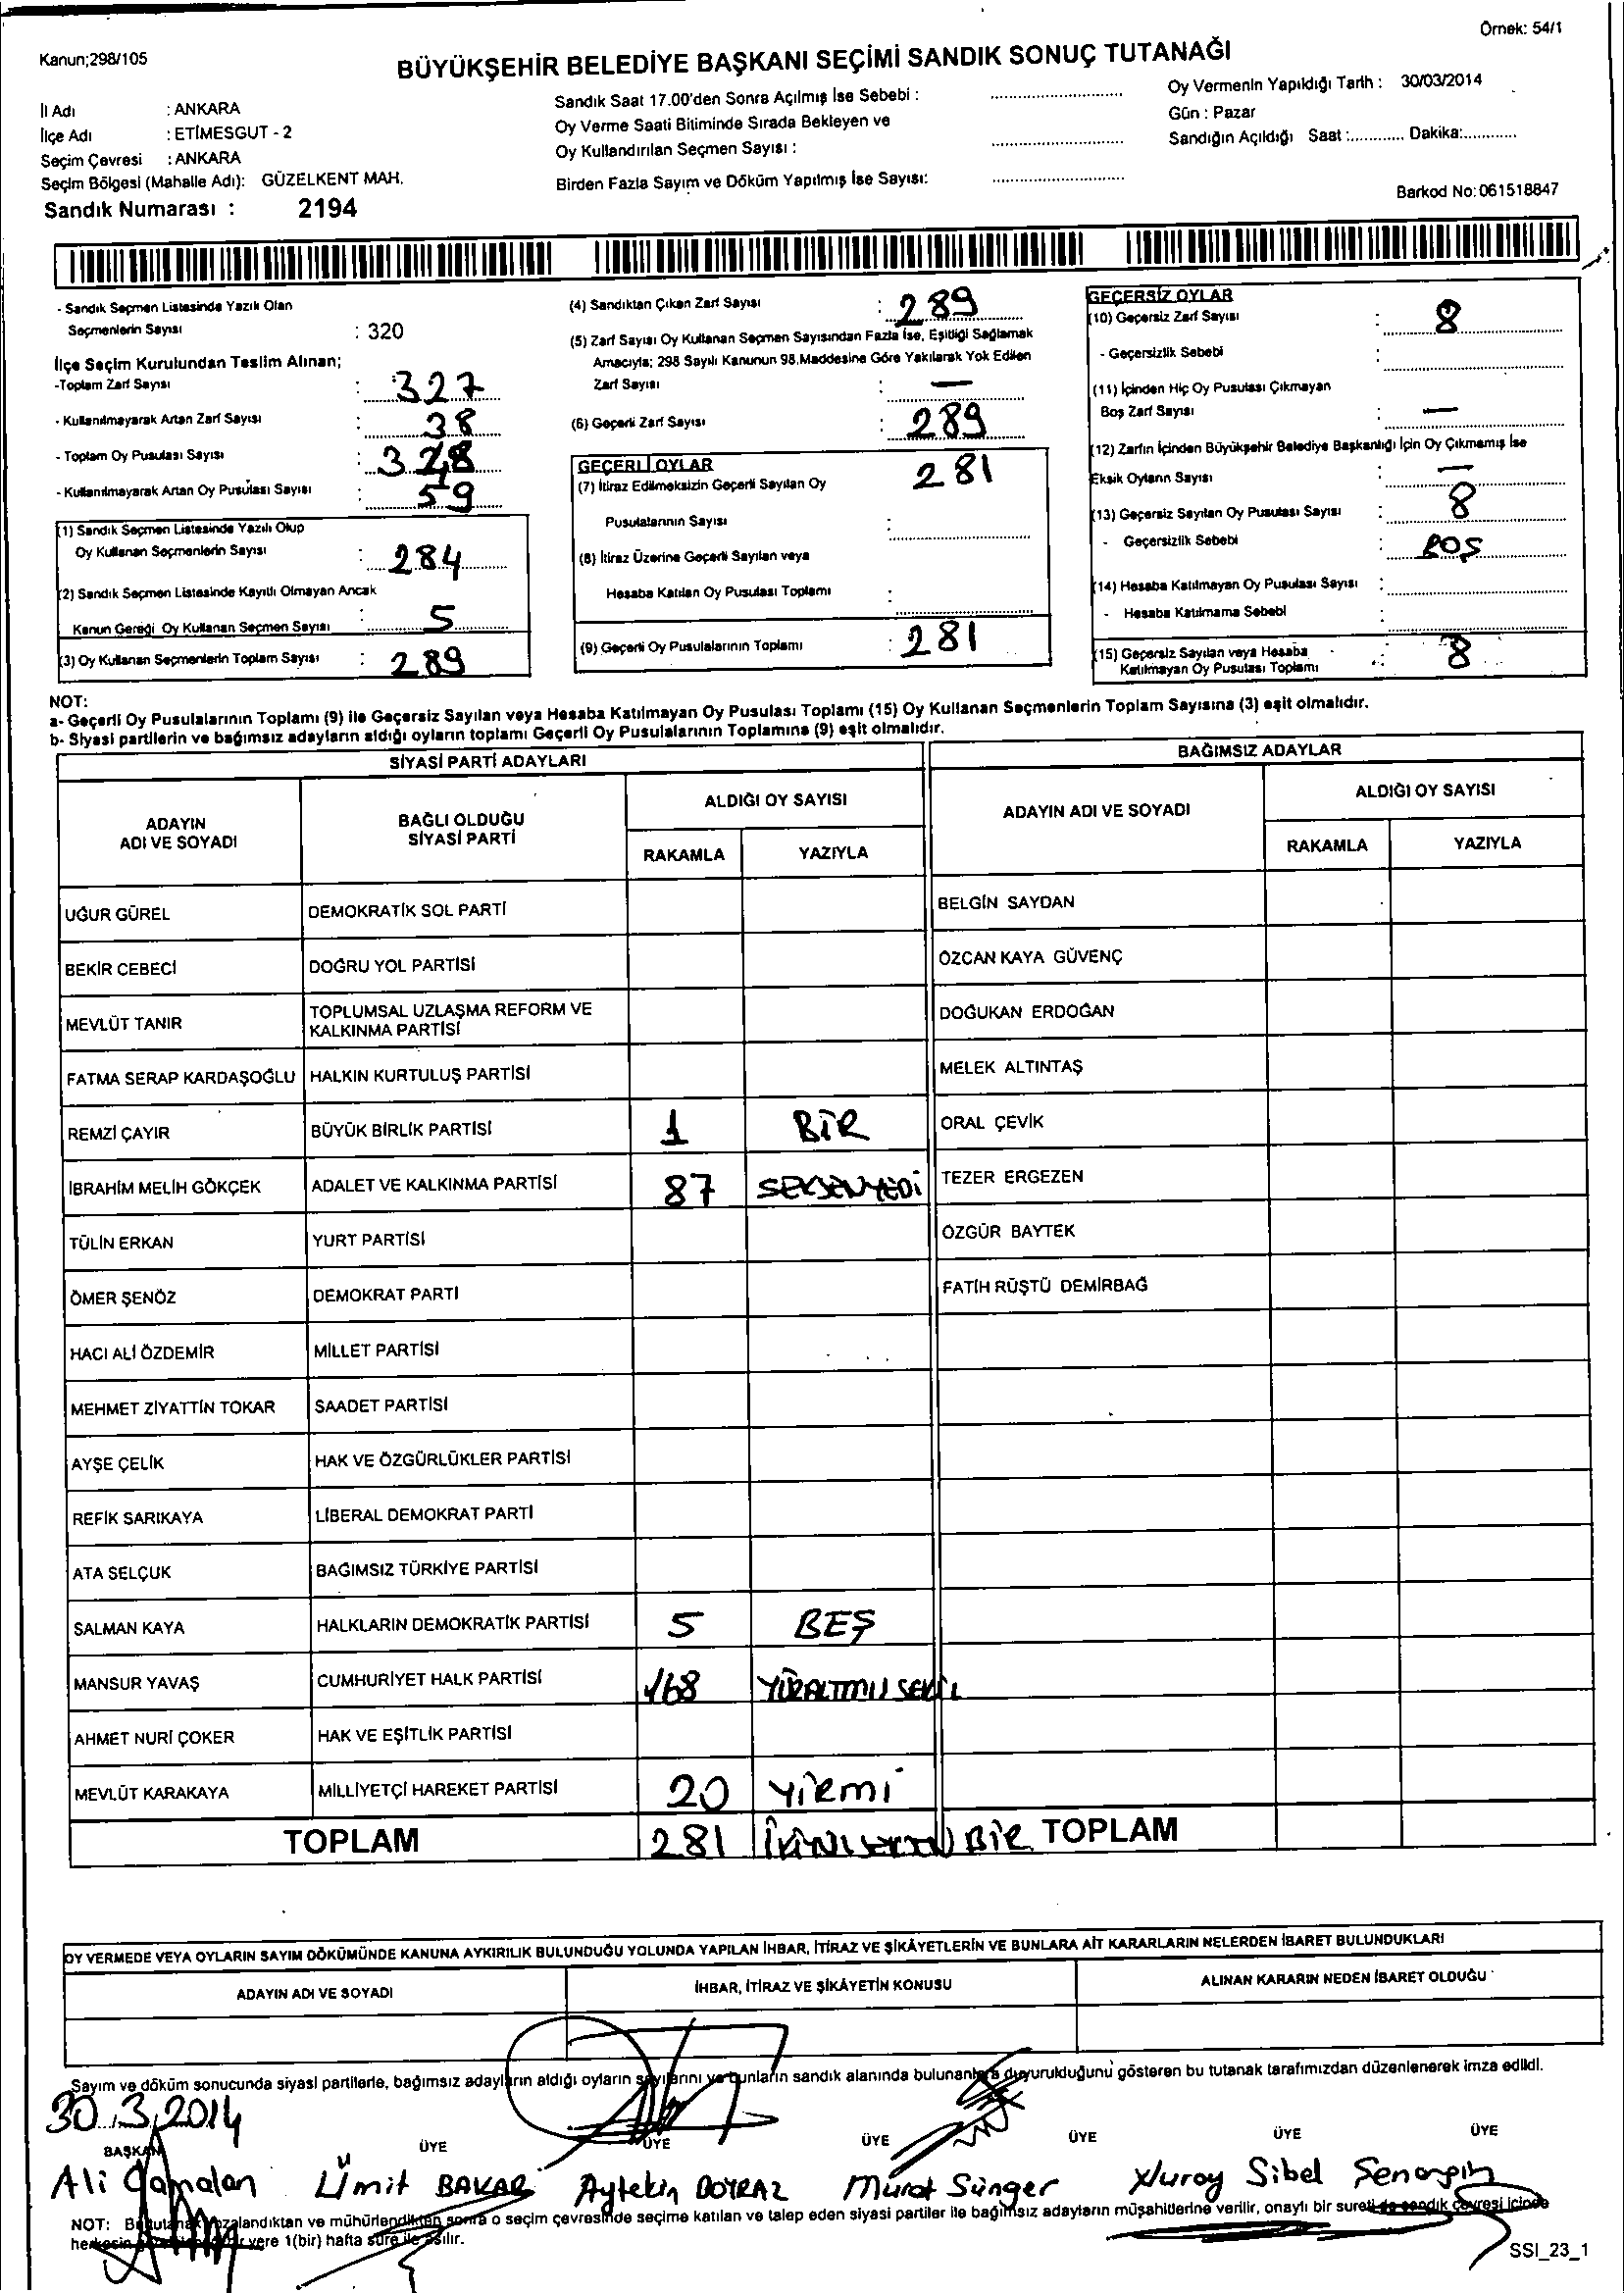 Örnek: 54/1
Kanun;298/105
BÜYÜKŞEHİR BELEDİYE BAŞKANI SEÇİMİ SANDIK SONUÇ TUTANAĞI
İl Adı : ANKARA
İlçe Adı : ETİMESGUT - 2
Seçim Çevresi : ANKARA
Seçim Bölgesi (Mahalle Adı): GÜZELKENT MAH.
Sandık Numarası : 2194
Sandık Saat 17.00'den Sonra Açılmış İse Sebebi :
Oy Verme Saati Bitiminde Sırada Bekleyen ve
Oy Kullandırılan Seçmen Sayısı :
Birden Fazla Sayım ve Döküm Yapılmış İse Sayısı:
Oy Vermenin Yapıldığı Tarih : 30/03/2014
Gün : Pazar
Sandığın Açıldığı Saat :............ Dakika:............
Barkod No:061518847
- Sandık Seçmen Listesinde Yazılı Olan
Seçmenlerin Sayısı : 320
İlçe Seçim Kurulundan Teslim Alınan;
-Toplam Zarf Sayısı : 327
- Kullanılmayarak Artan Zarf Sayısı : 38
- Toplam Oy Pusulası Sayısı :
- Kullanılmayarak Artan Oy Pusulası Sayısı : 59
(1) Sandık Seçmen Listesinde Yazılı Olup
Oy Kullanan Seçmenlerin Sayısı : 284
(2) Sandık Seçmen Listesinde Kayıtlı Olmayan Ancak
Kanun Gereği Oy Kullanan Seçmen Sayısı : 5
(3) Oy Kullanan Seçmenlerin Toplam Sayısı : 289
(4) Sandıktan Çıkan Zarf Sayısı : 289
(5) Zarf Sayısı Oy Kullanan Seçmen Sayısından Fazla İse, Eşitliği Sağlamak
Amacıyla; 298 Sayılı Kanunun 98.Maddesine Göre Yakılarak Yok Edilen
Zarf Sayısı : —
(6) Geçerli Zarf Sayısı : 289
GEÇERLİ OYLAR
(7) İtiraz Edilmeksizin Geçerli Sayılan Oy 281
Pusulalarının Sayısı :
(8) İtiraz Üzerine Geçerli Sayılan veya
Hesaba Katılan Oy Pusulası Toplamı :
(9) Geçerli Oy Pusulalarının Toplamı : 281
GEÇERSİZ OYLAR
(10) Geçersiz Zarf Sayısı : 8
- Geçersizlik Sebebi :
(11) İçinden Hiç Oy Pusulası Çıkmayan
Boş Zarf Sayısı : —
(12) Zarfın İçinden Büyükşehir Belediye Başkanlığı İçin Oy Çıkmamış İse
Eksik Oyların Sayısı : —
(13) Geçersiz Sayılan Oy Pusulası Sayısı : 8
- Geçersizlik Sebebi : BOŞ
(14) Hesaba Katılmayan Oy Pusulası Sayısı :
- Hesaba Katılmama Sebebi :
(15) Geçersiz Sayılan veya Hesaba
Katılmayan Oy Pusulası Toplamı : 8
NOT:
a- Geçerli Oy Pusulalarının Toplamı (9) ile Geçersiz Sayılan veya Hesaba Katılmayan Oy Pusulası Toplamı (15) Oy Kullanan Seçmenlerin Toplam Sayısına (3) eşit olmalıdır.
b- Siyasi partilerin ve bağımsız adayların aldığı oyların toplamı Geçerli Oy Pusulalarının Toplamına (9) eşit olmalıdır.
SİYASİ PARTİ ADAYLARI
BAĞIMSIZ ADAYLAR
ADAYIN
ADI VE SOYADI
BAĞLI OLDUĞU
SİYASİ PARTİ
ALDIĞI OY SAYISI
RAKAMLA YAZIYLA
ADAYIN ADI VE SOYADI
ALDIĞI OY SAYISI
RAKAMLA YAZIYLA
UĞUR GÜREL DEMOKRATİK SOL PARTİ BELGİN SAYDAN
BEKİR CEBECİ DOĞRU YOL PARTİSİ ÖZCAN KAYA GÜVENÇ
MEVLÜT TANIR TOPLUMSAL UZLAŞMA REFORM VE
KALKINMA PARTİSİ DOĞUKAN ERDOĞAN
FATMA SERAP KARDAŞOĞLU HALKIN KURTULUŞ PARTİSİ MELEK ALTINTAŞ
REMZİ ÇAYIR BÜYÜK BİRLİK PARTİSİ 1 BİR ORAL ÇEVİK
İBRAHİM MELİH GÖKÇEK ADALET VE KALKINMA PARTİSİ 87 SEKSENYEDİ TEZER ERGEZEN
TÜLİN ERKAN YURT PARTİSİ ÖZGÜR BAYTEK
ÖMER ŞENÖZ DEMOKRAT PARTİ FATİH RÜŞTÜ DEMİRBAĞ
HACI ALİ ÖZDEMİR MİLLET PARTİSİ
MEHMET ZİYATTİN TOKAR SAADET PARTİSİ
AYŞE ÇELİK HAK VE ÖZGÜRLÜKLER PARTİSİ
REFİK SARIKAYA LİBERAL DEMOKRAT PARTİ
ATA SELÇUK BAĞIMSIZ TÜRKİYE PARTİSİ
SALMAN KAYA HALKLARIN DEMOKRATİK PARTİSİ 5 BEŞ
MANSUR YAVAŞ CUMHURİYET HALK PARTİSİ 168
AHMET NURİ ÇOKER HAK VE EŞİTLİK PARTİSİ
MEVLÜT KARAKAYA MİLLİYETÇİ HAREKET PARTİSİ 20 YİRMİ
TOPLAM 281 BİR TOPLAM
OY VERMEDE VEYA OYLARIN SAYIM DÖKÜMÜNDE KANUNA AYKIRILIK BULUNDUĞU YOLUNDA YAPILAN İHBAR, İTİRAZ VE ŞİKÂYETLERİN VE BUNLARA AİT KARARLARIN NELERDEN İBARET BULUNDUKLARI
ADAYIN ADI VE SOYADI İHBAR, İTİRAZ VE ŞİKÂYETİN KONUSU ALINAN KARARIN NEDEN İBARET OLDUĞU
Sayım ve döküm sonucunda siyasi partilerle, bağımsız adayların aldığı oyların sayılarını ve bunların sandık alanında bulunanlara duyurulduğunu gösteren bu tutanak tarafımızdan düzenlenerek imza edildi.
30.3.2014
BAŞKAN ÜYE ÜYE ÜYE ÜYE ÜYE ÜYE
Ali Ümit BAKAR Aytekin BOYRAZ Murat Sünger Nuray Sibel
NOT: Bu tutanak imzalandıktan ve mühürlendikten sonra o seçim çevresinde seçime katılan ve talep eden siyasi partiler ile bağımsız adayların müşahitlerine verilir, onaylı bir sureti de sandık çevresi içinde
herkesin yere 1(bir) hafta süre ile asılır.
SSI_23_1